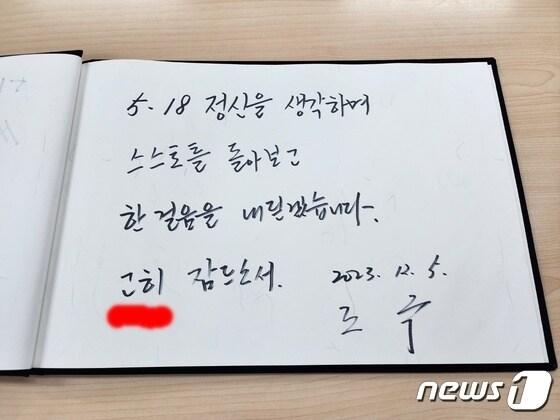 5·18 정신을 생각하며
스스로를 돌아보고
한 걸음을 내딛겠습니다.
고히 잠드소서. 2023. 12. 5.
조 국
news1